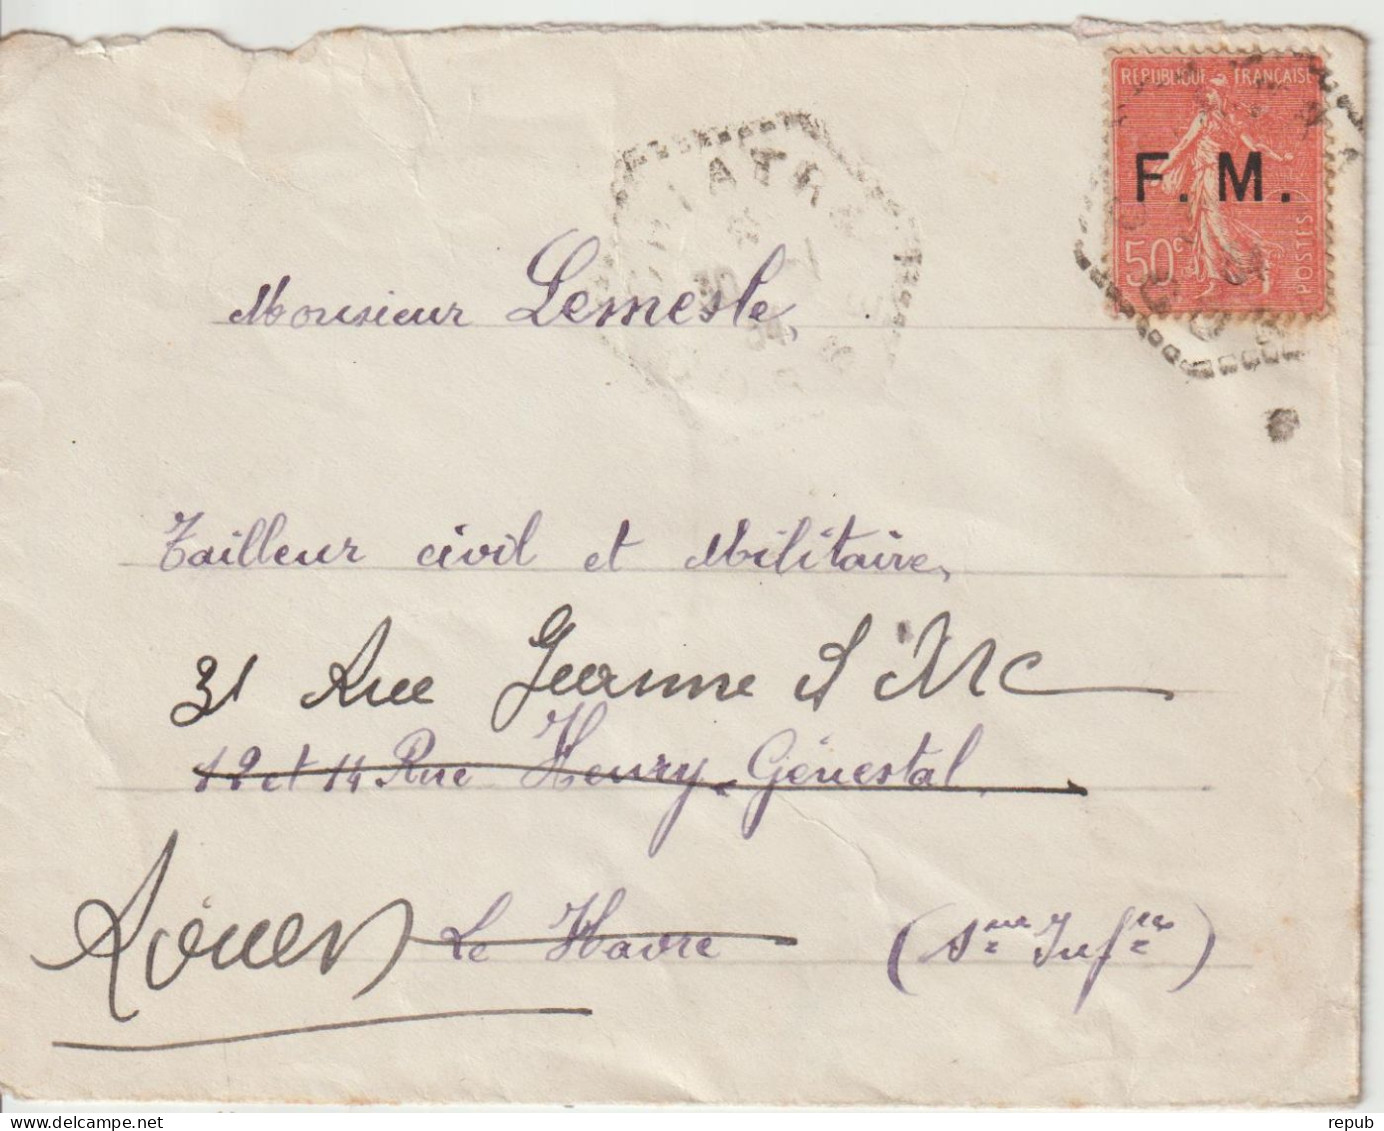 REPUBLIQUE FRANÇAISE
F. M.
50c
POSTES
Monsieur Lemesle,
Tailleur civil et Militaire,
31 Rue Jeanne d'Arc
12 et 14 Rue Henry Génestal,
Rouen Le Havre (Sne Infre)
delcampe.net
repub